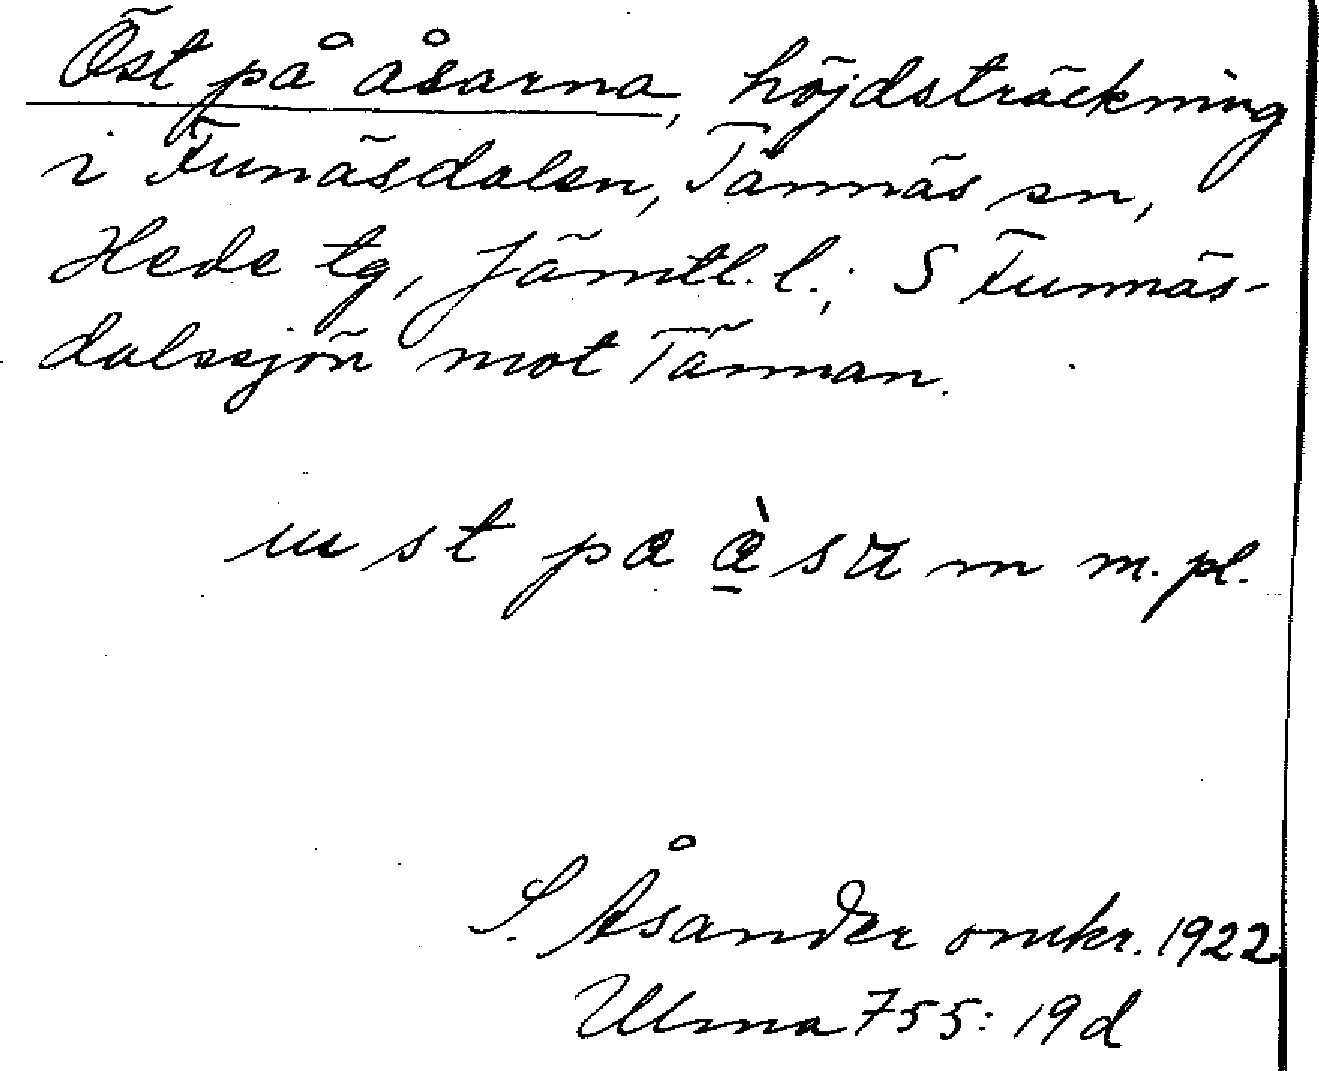 Öst på åsarna, höjdsträckning
i Funäsdalen, Tännäs sn,
Hede tg, Jämtl. l.; S Funnäs-
dalssjön mot Tännan.
st m. pl.
S. Åsander omkr. 1922
Ulma 755: 19d